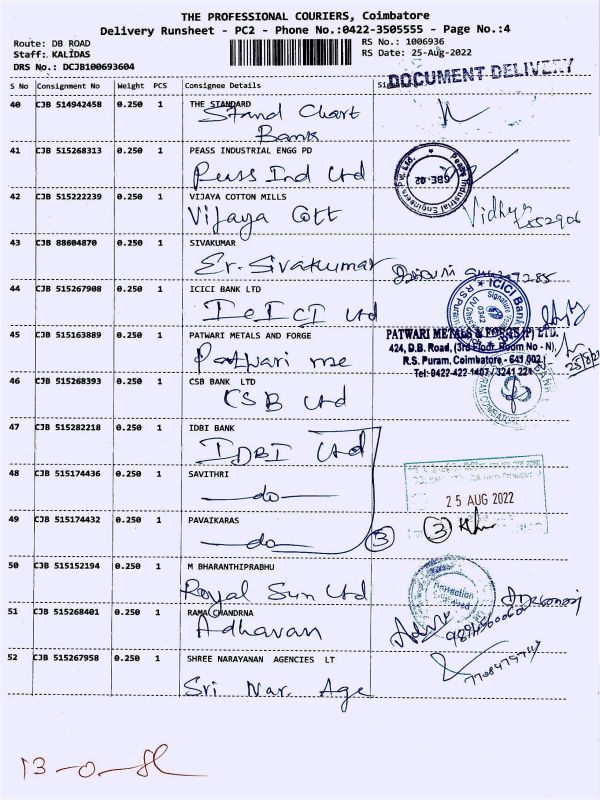 THE PROFESSIONAL COURIERS, Coimbatore
Delivery Runsheet - PC2 - Phone No.:0422-3505555 - Page No.:4
Route: DB ROAD
Staff: KALIDAS
DRS No.: DCJB100693604
RS No.: 1006936
RS Date: 25-Aug-2022
DOCUMENT DELIVERY
S No Consignment No Weight PCS Consignee Details
40 CJB 514942458 0.250 1 THE STANDARD
Stand Chart
Bank
41 CJB 515268313 0.250 1 PEASS INDUSTRIAL ENGG PD
Peass Ind Ltd
Peass Industrial Engineers Pvt. Ltd.
CBE-02
42 CJB 515222239 0.250 1 VIJAYA COTTON MILLS
Vijaya Cott
Vidhya
43 CJB 88604870 0.250 1 SIVAKUMAR
Er. Sivakumar
44 CJB 515267908 0.250 1 ICICI BANK LTD
ICICI Ltd
ICICI Bank
R S Puram
45 CJB 515163889 0.250 1 PATWARI METALS AND FORGE
Patwari me
PATWARI METALS & FORGE (P) LTD.
424, D.B. Road, (3rd Floor, Room No - N),
R.S. Puram, Coimbatore - 641 002.
Tel: 0422-422 1407 / 3241 224
46 CJB 515268393 0.250 1 CSB BANK LTD
CSB Ltd
47 CJB 515282218 0.250 1 IDBI BANK
IDBI Ltd
48 CJB 515174436 0.250 1 SAVITHRI
—do—
25 AUG 2022
49 CJB 515174432 0.250 1 PAVAIKARAS
—do—
3
3
50 CJB 515152194 0.250 1 M BHARANTHIPRABHU
Royal Sun Ltd
51 CJB 515268401 0.250 1 RAMACHANDRNA
Adhavan
52 CJB 515267958 0.250 1 SHREE NARAYANAN AGENCIES LT
Sri Nar. Age